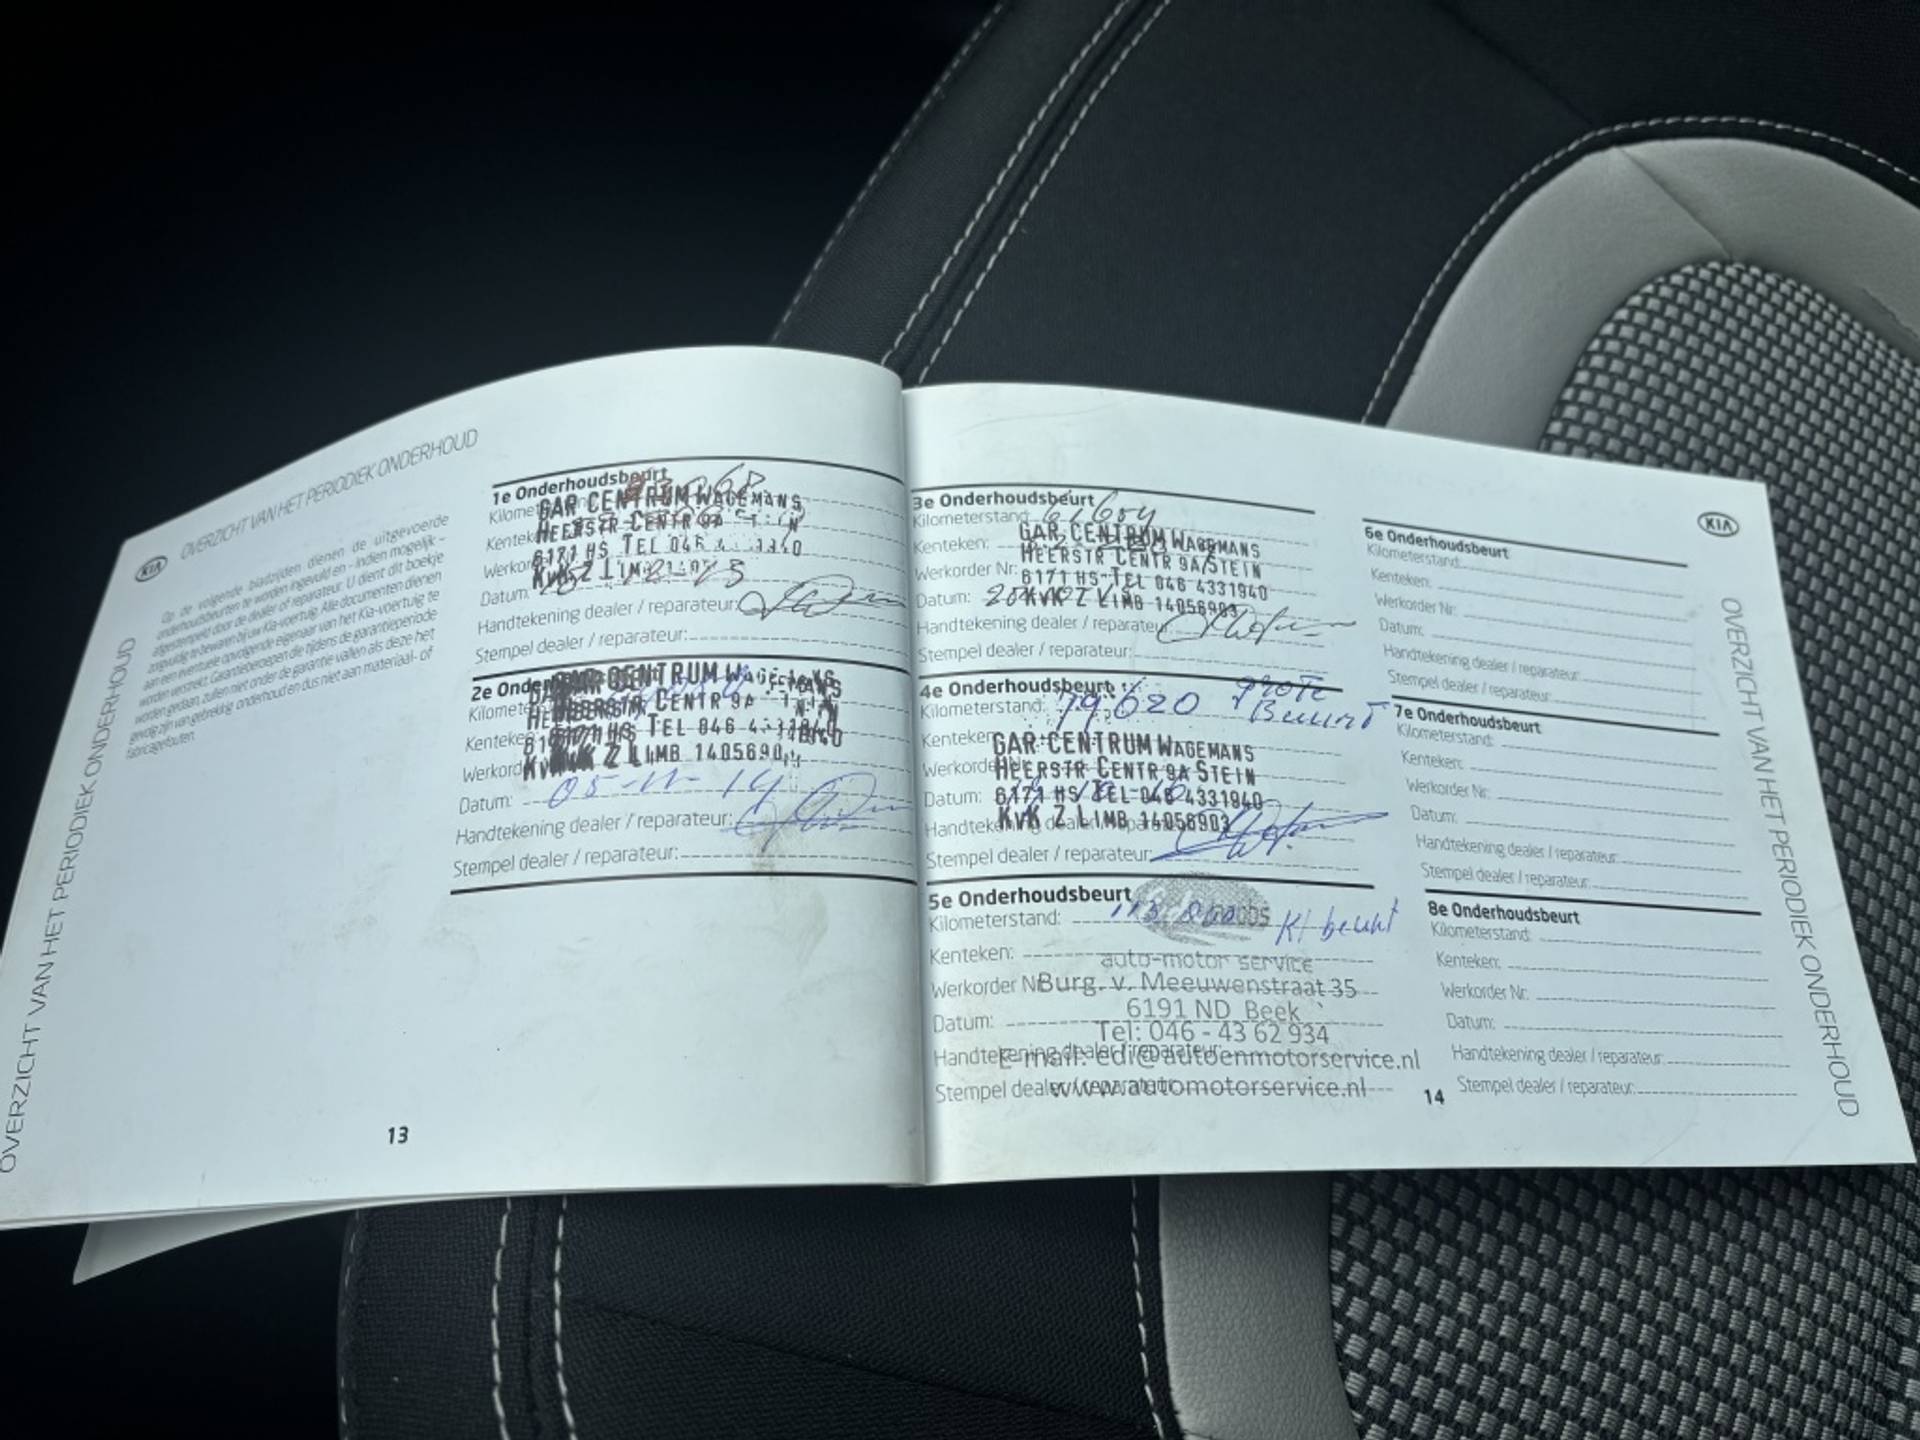 OVERZICHT VAN HET PERIODIEK ONDERHOUD
KIA
OVERZICHT VAN HET PERIODIEK ONDERHOUD
Op de volgende bladzijden dienen de uitgevoerde
onderhoudsbeurten te worden ingevuld en - indien mogelijk -
afgestempeld door de dealer of reparateur. U dient dit boekje
zorgvuldig te bewaren bij uw Kia-voertuig. Alle documenten dienen
aan een eventuele opvolgende eigenaar van het Kia-voertuig te
worden verstrekt. Garantieberoepen die tijdens de garantieperiode
worden gedaan, zullen niet onder de garantie vallen als deze het
gevolg zijn van gebrekkig onderhoud en dus niet aan materiaal- of
fabricagefouten.
1e Onderhoudsbeurt
GAR CENTRUM WAGEMANS
HEERSTR CENTR 9A
6171 HS TEL 046
KVK Z LIMB
Datum:
Handtekening dealer / reparateur:
Stempel dealer / reparateur:
2e
GAR CENTRUM
HEERSTR CENTR 9A
TEL 046
KVK Z LIMB 1405690
Datum: 05-11-14
Handtekening dealer / reparateur:
Stempel dealer / reparateur:
13
3e Onderhoudsbeurt
Kilometerstand: 61654
Kenteken: GAR CENTRUM WAGEMANS
HEERSTR CENTR 9A STEIN
Werkorder Nr: 6171 HS TEL 046 4331940
Datum: KVK Z LIMB 14056903
Handtekening dealer / reparateur:
Stempel dealer / reparateur:
4e Onderhoudsbeurt
Kilometerstand: 79620 grote Beurt
Kenteken
GAR CENTRUM WAGEMANS
HEERSTR CENTR 9A STEIN
Datum: 6171 HS TEL 046 4331940
KVK Z LIMB 14056903
Stempel dealer / reparateur:
5e Onderhoudsbeurt
Kilometerstand: Kl beurt
Kenteken:
auto-motor service
Werkorder Nr Burg. v. Meeuwenstraat 35
6191 ND Beek
Datum:
Tel: 046 - 43 62 934
Handtekening dealer / reparateur:
E-mail: edi@autoenmotorservice.nl
Stempel dealer / reparateur:
www.automotorservice.nl
14
6e Onderhoudsbeurt
Kilometerstand:
Kenteken:
Werkorder Nr:
Datum:
Handtekening dealer / reparateur:
Stempel dealer / reparateur:
7e Onderhoudsbeurt
Kilometerstand:
Kenteken:
Werkorder Nr:
Datum:
Handtekening dealer / reparateur:
Stempel dealer / reparateur:
8e Onderhoudsbeurt
Kilometerstand:
Kenteken:
Werkorder Nr:
Datum:
Handtekening dealer / reparateur:
Stempel dealer / reparateur:
KIA
OVERZICHT VAN HET PERIODIEK ONDERHOUD